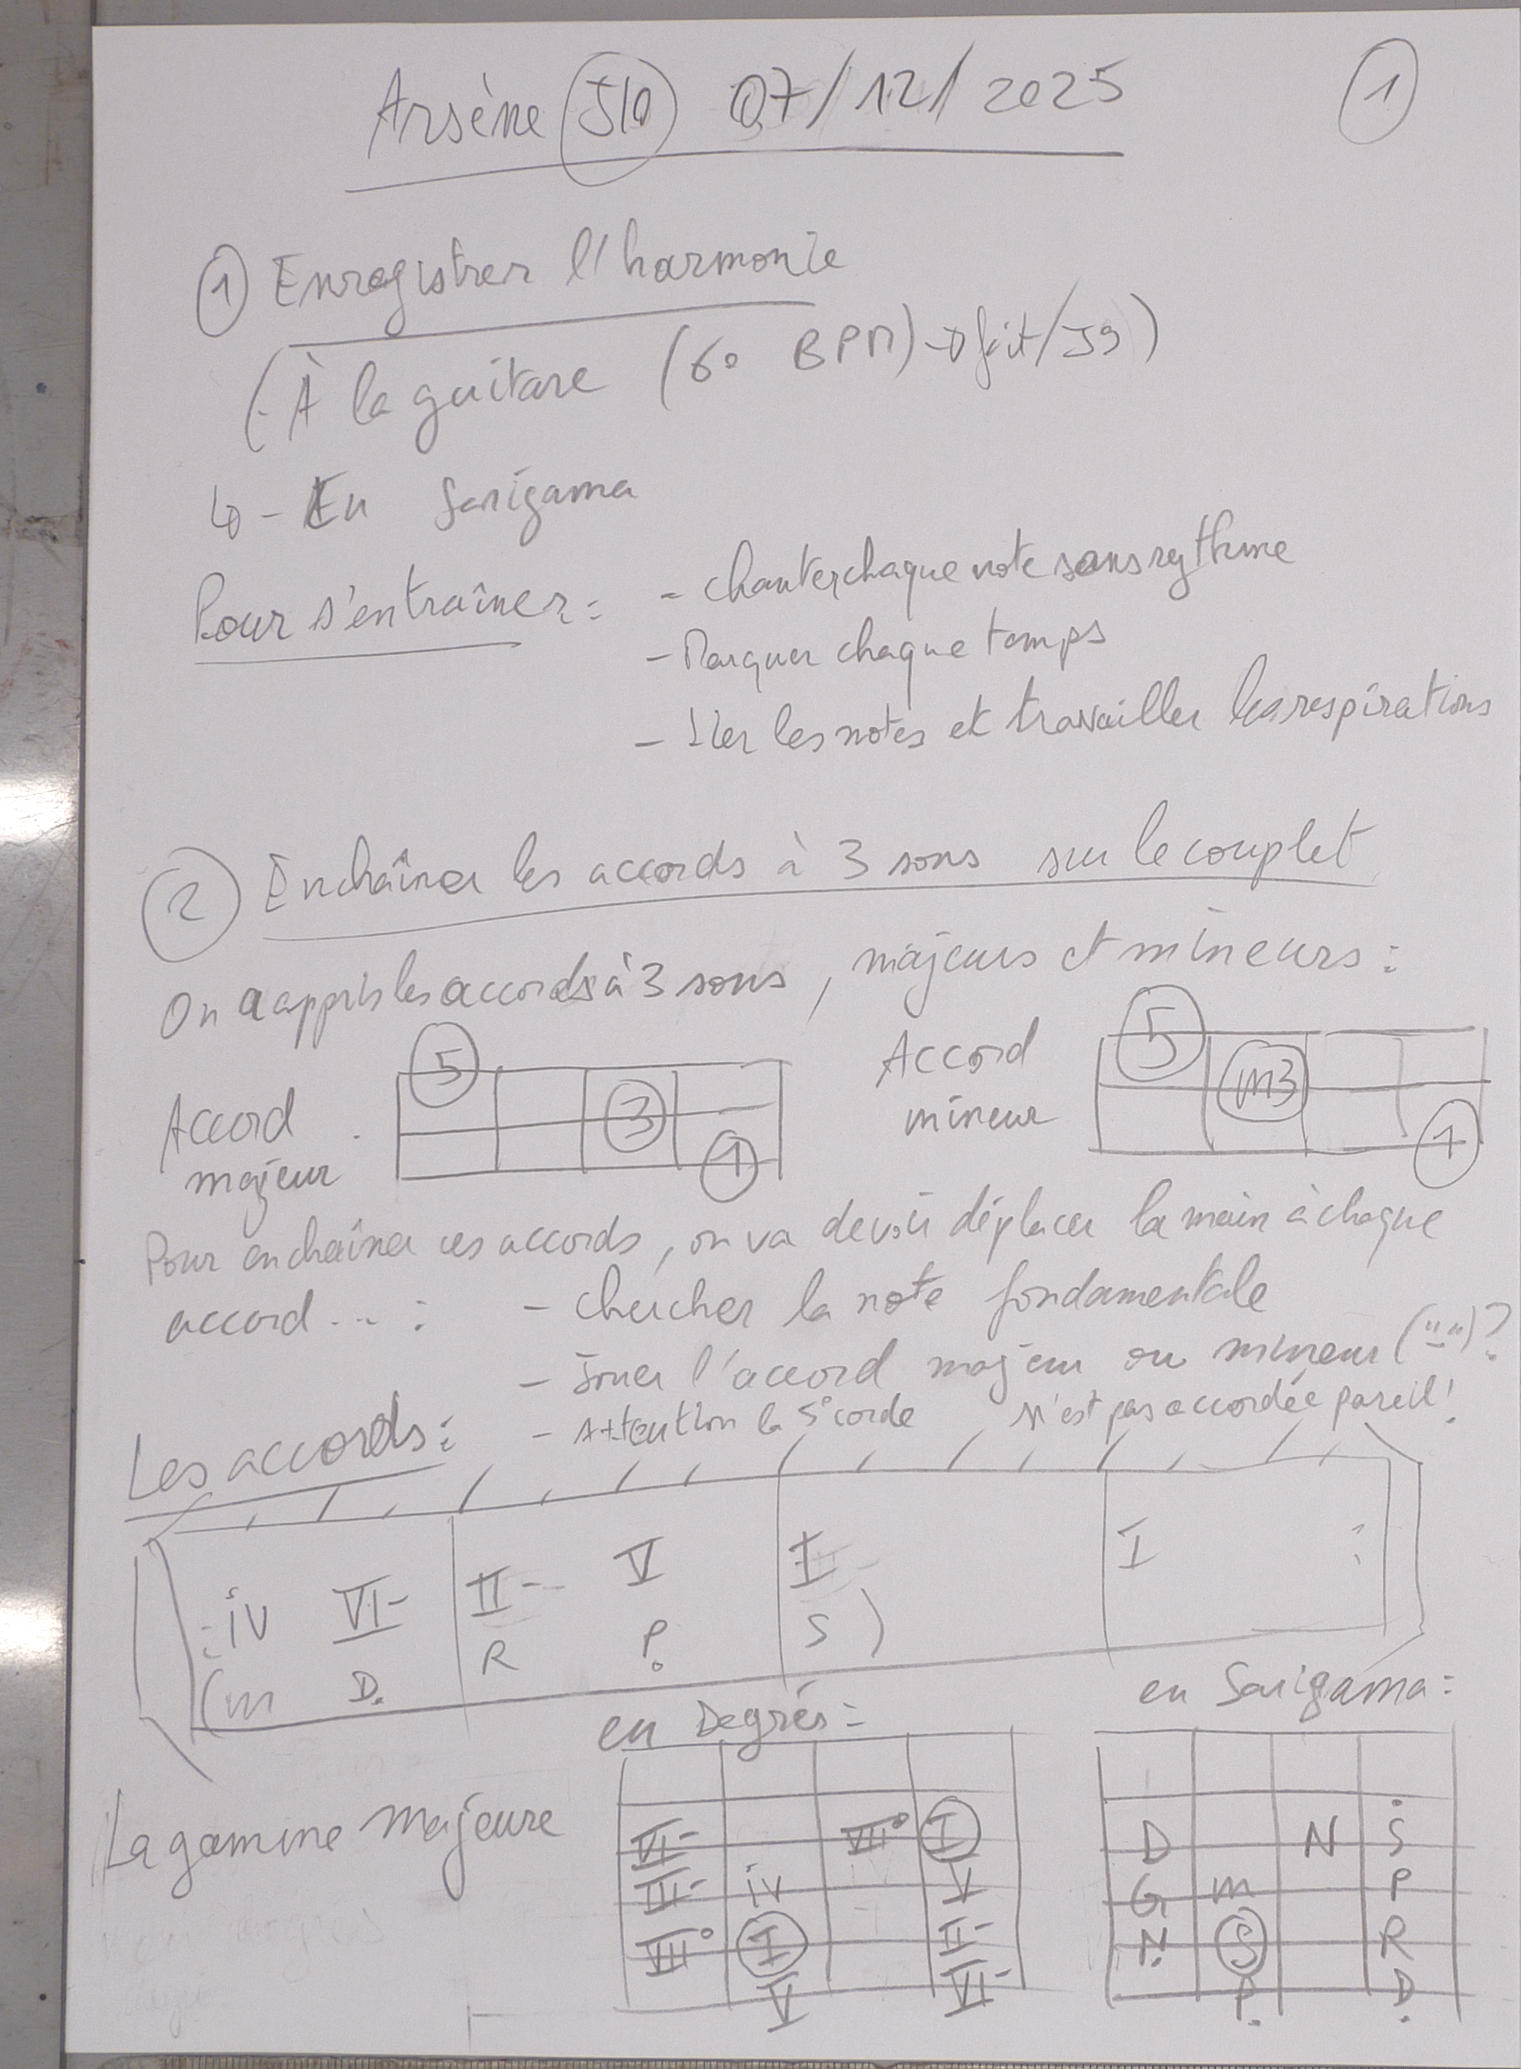 Arsène J10 07/12/2025 1
1 Enregistrer l'harmonie
(- À la guitare (60 BPM) → fait/J9)
↳ - En Sarigama
Pour s'entraîner : - chanter chaque note sans rythme
- Marquer chaque temps
- Lier les notes et travailler les respirations
2 Enchaîner les accords à 3 sons sur le couplet
On a appris les accords à 3 sons, majeurs et mineurs :
Accord majeur 5 3 1
Accord mineur 5 m3 1
Pour enchaîner ces accords, on va devoir déplacer la main à chaque
accord ... : - chercher la note fondamentale
- Jouer l'accord majeur ou mineur ("-")?
- Attention la 5° corde n'est pas accordée pareil!
Les accords :
: iv VI- II- V I I :
(m Ḍ R P̣ S)
en Degrés : en Sarigama :
La gamme majeure
VI- VII° I D N Ṡ
III- iv V G m P
VII° I II- Ṇ S R
V VI- P̣ Ḍ